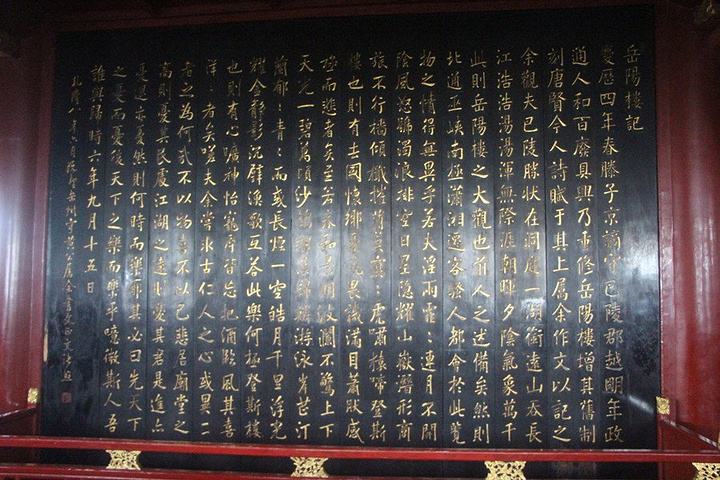 岳陽樓記
慶歷四年春滕子京謫守巴陵郡越明年政
通人和百廢具興乃重修岳陽樓增其舊制
刻唐賢今人詩賦于其上屬余作文以記之
余觀夫巴陵勝狀在洞庭一湖銜遠山吞長
江浩浩湯湯渾無際涯朝暉夕陰氣象萬千
此則岳陽樓之大觀也前人之述備矣然則
北通巫峽南極瀟湘遷客騷人都會於此覽
物之情得無異乎若夫淫雨霏:連月不開
陰風怒號濁浪排空日星隱耀山嶽潛形商
旅不行檣傾楫摧薄暮冥:虎嘯猿啼登斯
樓也則有去國懷鄉憂讒畏譏滿目蕭然感
極而悲者矣至若春和景明波瀾不驚上下
天光一碧萬頃沙鷗翔集錦鱗游泳岸芷汀
蘭郁:青:而或長煙一空皓月千里浮光
耀金靜影沉璧漁歌互答此樂何極登斯樓
也則有心曠神怡寵辱皆忘把酒臨風其喜
洋:者矣嗟夫余嘗求古仁人之心或異二
者之為何哉不以物喜不以己悲居廟堂之
高則憂其民處江湖之遠則憂其君是進亦
憂退亦憂然則何時而樂耶其必曰先天下
之憂而憂後天下之樂而樂乎噫微斯人吾
誰與歸時六年九月十五日